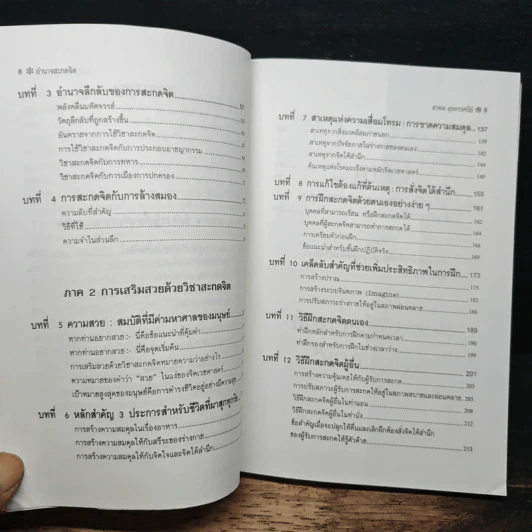 8 ❄ อำนาจสะกดจิต
บทที่ 3 อำนาจลึกลับของการสะกดจิต
พลังคลื่นมหัศจรรย์
วัตถุลึกลับที่ถูกสร้างขึ้น
อันตรายจากการใช้วิชาสะกดจิต
การใช้วิชาสะกดจิตกับการประกอบอาชญากรรม
วิชาสะกดจิตกับการทหาร
วิชาสะกดจิตกับการเมืองการปกครอง
บทที่ 4 การสะกดจิตกับการล้างสมอง
ความลับที่สำคัญ
วิธีที่ใช้
ความจำในส่วนลึก
ภาค 2 การเสริมสวยด้วยวิชาสะกดจิต
บทที่ 5 ความสวย : สมบัติที่มีค่ามหาศาลของมนุษย์
หากท่านอยากสวย : นี่คือข้อแนะนำที่คุ้มค่า
หากท่านอยากสวย : นี่คือจุดเริ่มต้น
การเสริมสวยด้วยวิชาสะกดจิตหมายความว่าอย่างไร
ความหมายของคำว่า "สวย" ในแง่ของจิตเวชศาสตร์
เป้าหมายสูงสุดของมนุษย์คือการดำรงชีวิตอยู่อย่างมีความสุข
บทที่ 6 หลักสำคัญ 3 ประการสำหรับชีวิตที่ผาสุก
การสร้างความสมดุลในเรื่องอาหาร
การสร้างความสมดุลให้กับสรีระของร่างกาย
การสร้างความสมดุลให้กับจิตใจและจิตใต้สำนึก
❄ 9
บทที่ 7 สาเหตุแห่งความเสื่อมโทรม : การขาดความสมดุล 137
สาเหตุจากสิ่งแวดล้อมภายนอก
สาเหตุจากปัจจัยภายในร่างกายของตนเอง 144
สาเหตุจากจิตใต้สำนึก
ต้นเหตุแห่งโรคมะเร็งตามหลักจิตเวชศาสตร์
บทที่ 8 การแก้ไขต้องแก้ที่ต้นเหตุ : การสั่งจิตใต้สำนึก 155
บทที่ 9 การฝึกสะกดจิตด้วยตนเองอย่างง่าย ๆ 161
บุคคลที่สามารถเรียน หรือฝึกสะกดจิตได้
บุคคลที่ผู้สะกดจิตสามารถทำการสะกดได้
การเตรียมตัวก่อนฝึก 166
ข้อแนะนำสำหรับขั้นฝึกปฏิบัติจริง 169
บทที่ 10 เคล็ดลับสำคัญที่ช่วยเพิ่มประสิทธิภาพในการฝึก 173
การสร้างปราณ
การสร้างระบบจินตภาพ (Imagine)
การปรับสภาวะร่างกายให้อยู่ในสภาพผ่อนคลาย
บทที่ 11 วิธีฝึกสะกดจิตตนเอง 189
ท่าฝึกหลักสำหรับการฝึกตามกำหนดเวลา
ท่าฝึกรองสำหรับการฝึกในช่วงเวลาว่าง
บทที่ 12 วิธีฝึกสะกดจิตผู้อื่น 201
การสร้างความคุ้นเคยให้กับผู้รับการสะกด
การปรับสภาวะผู้รับการสะกดให้อยู่ในสภาพสบายและผ่อนคลาย
วิธีฝึกสะกดจิตผู้อื่นในท่านอน
วิธีฝึกสะกดจิตผู้อื่นในท่านั่ง
ข้อสำคัญเมื่อจะปลุกให้ตื่นและเลิกฝึกต้องสั่งจิตใต้สำนึก
ของผู้รับการสะกดให้รู้ตัวด้วย 213